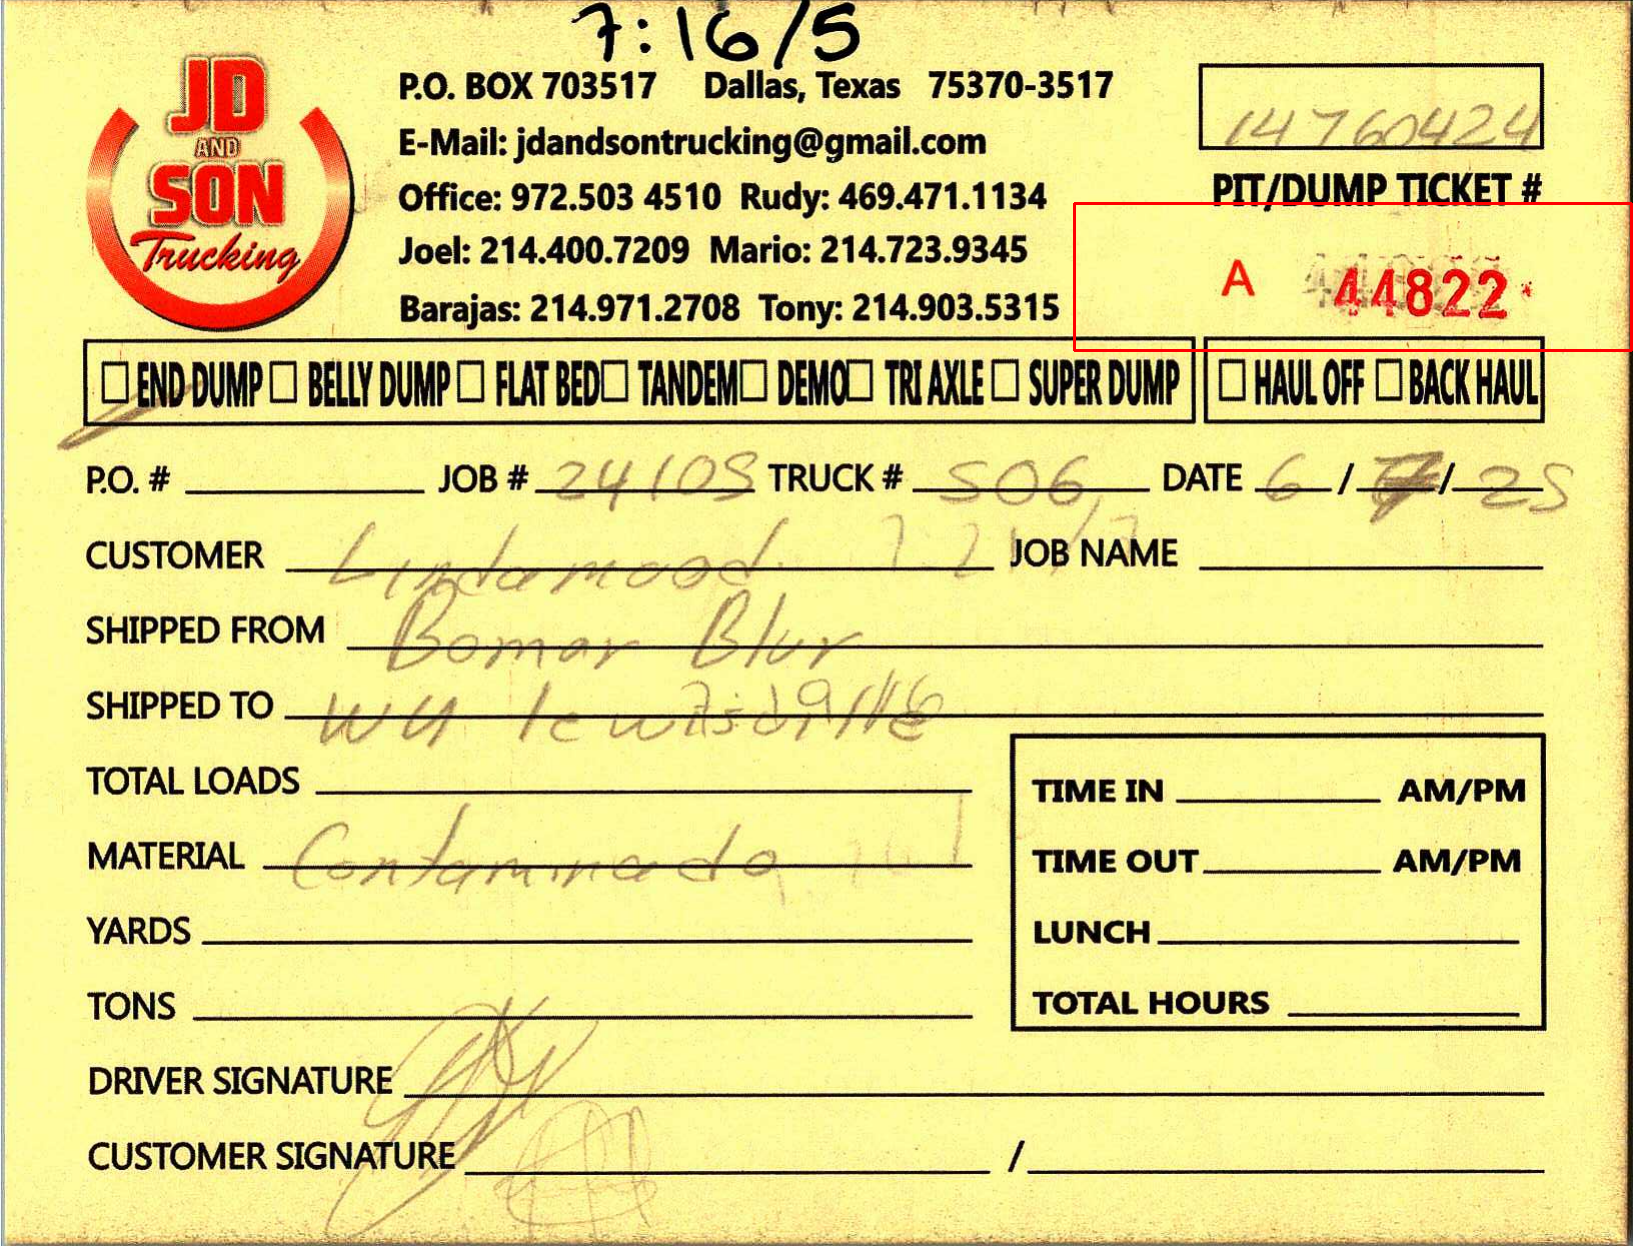 7:16/5
JD AND SON Trucking
P.O. BOX 703517 Dallas, Texas 75370-3517
E-Mail: jdandsontrucking@gmail.com
Office: 972.503 4510 Rudy: 469.471.1134
Joel: 214.400.7209 Mario: 214.723.9345
Barajas: 214.971.2708 Tony: 214.903.5315
14760424
PIT/DUMP TICKET #
A 44822
END DUMP BELLY DUMP FLAT BED TANDEM DEMO TRI AXLE SUPER DUMP HAUL OFF BACK HAUL
P.O. # JOB # 24105 TRUCK # 506 DATE 6 / / 25
CUSTOMER Lindamood JOB NAME
SHIPPED FROM Bomar Blur
SHIPPED TO
TOTAL LOADS
MATERIAL Contaminado
YARDS
TONS
TIME IN AM/PM
TIME OUT AM/PM
LUNCH
TOTAL HOURS
DRIVER SIGNATURE
CUSTOMER SIGNATURE /